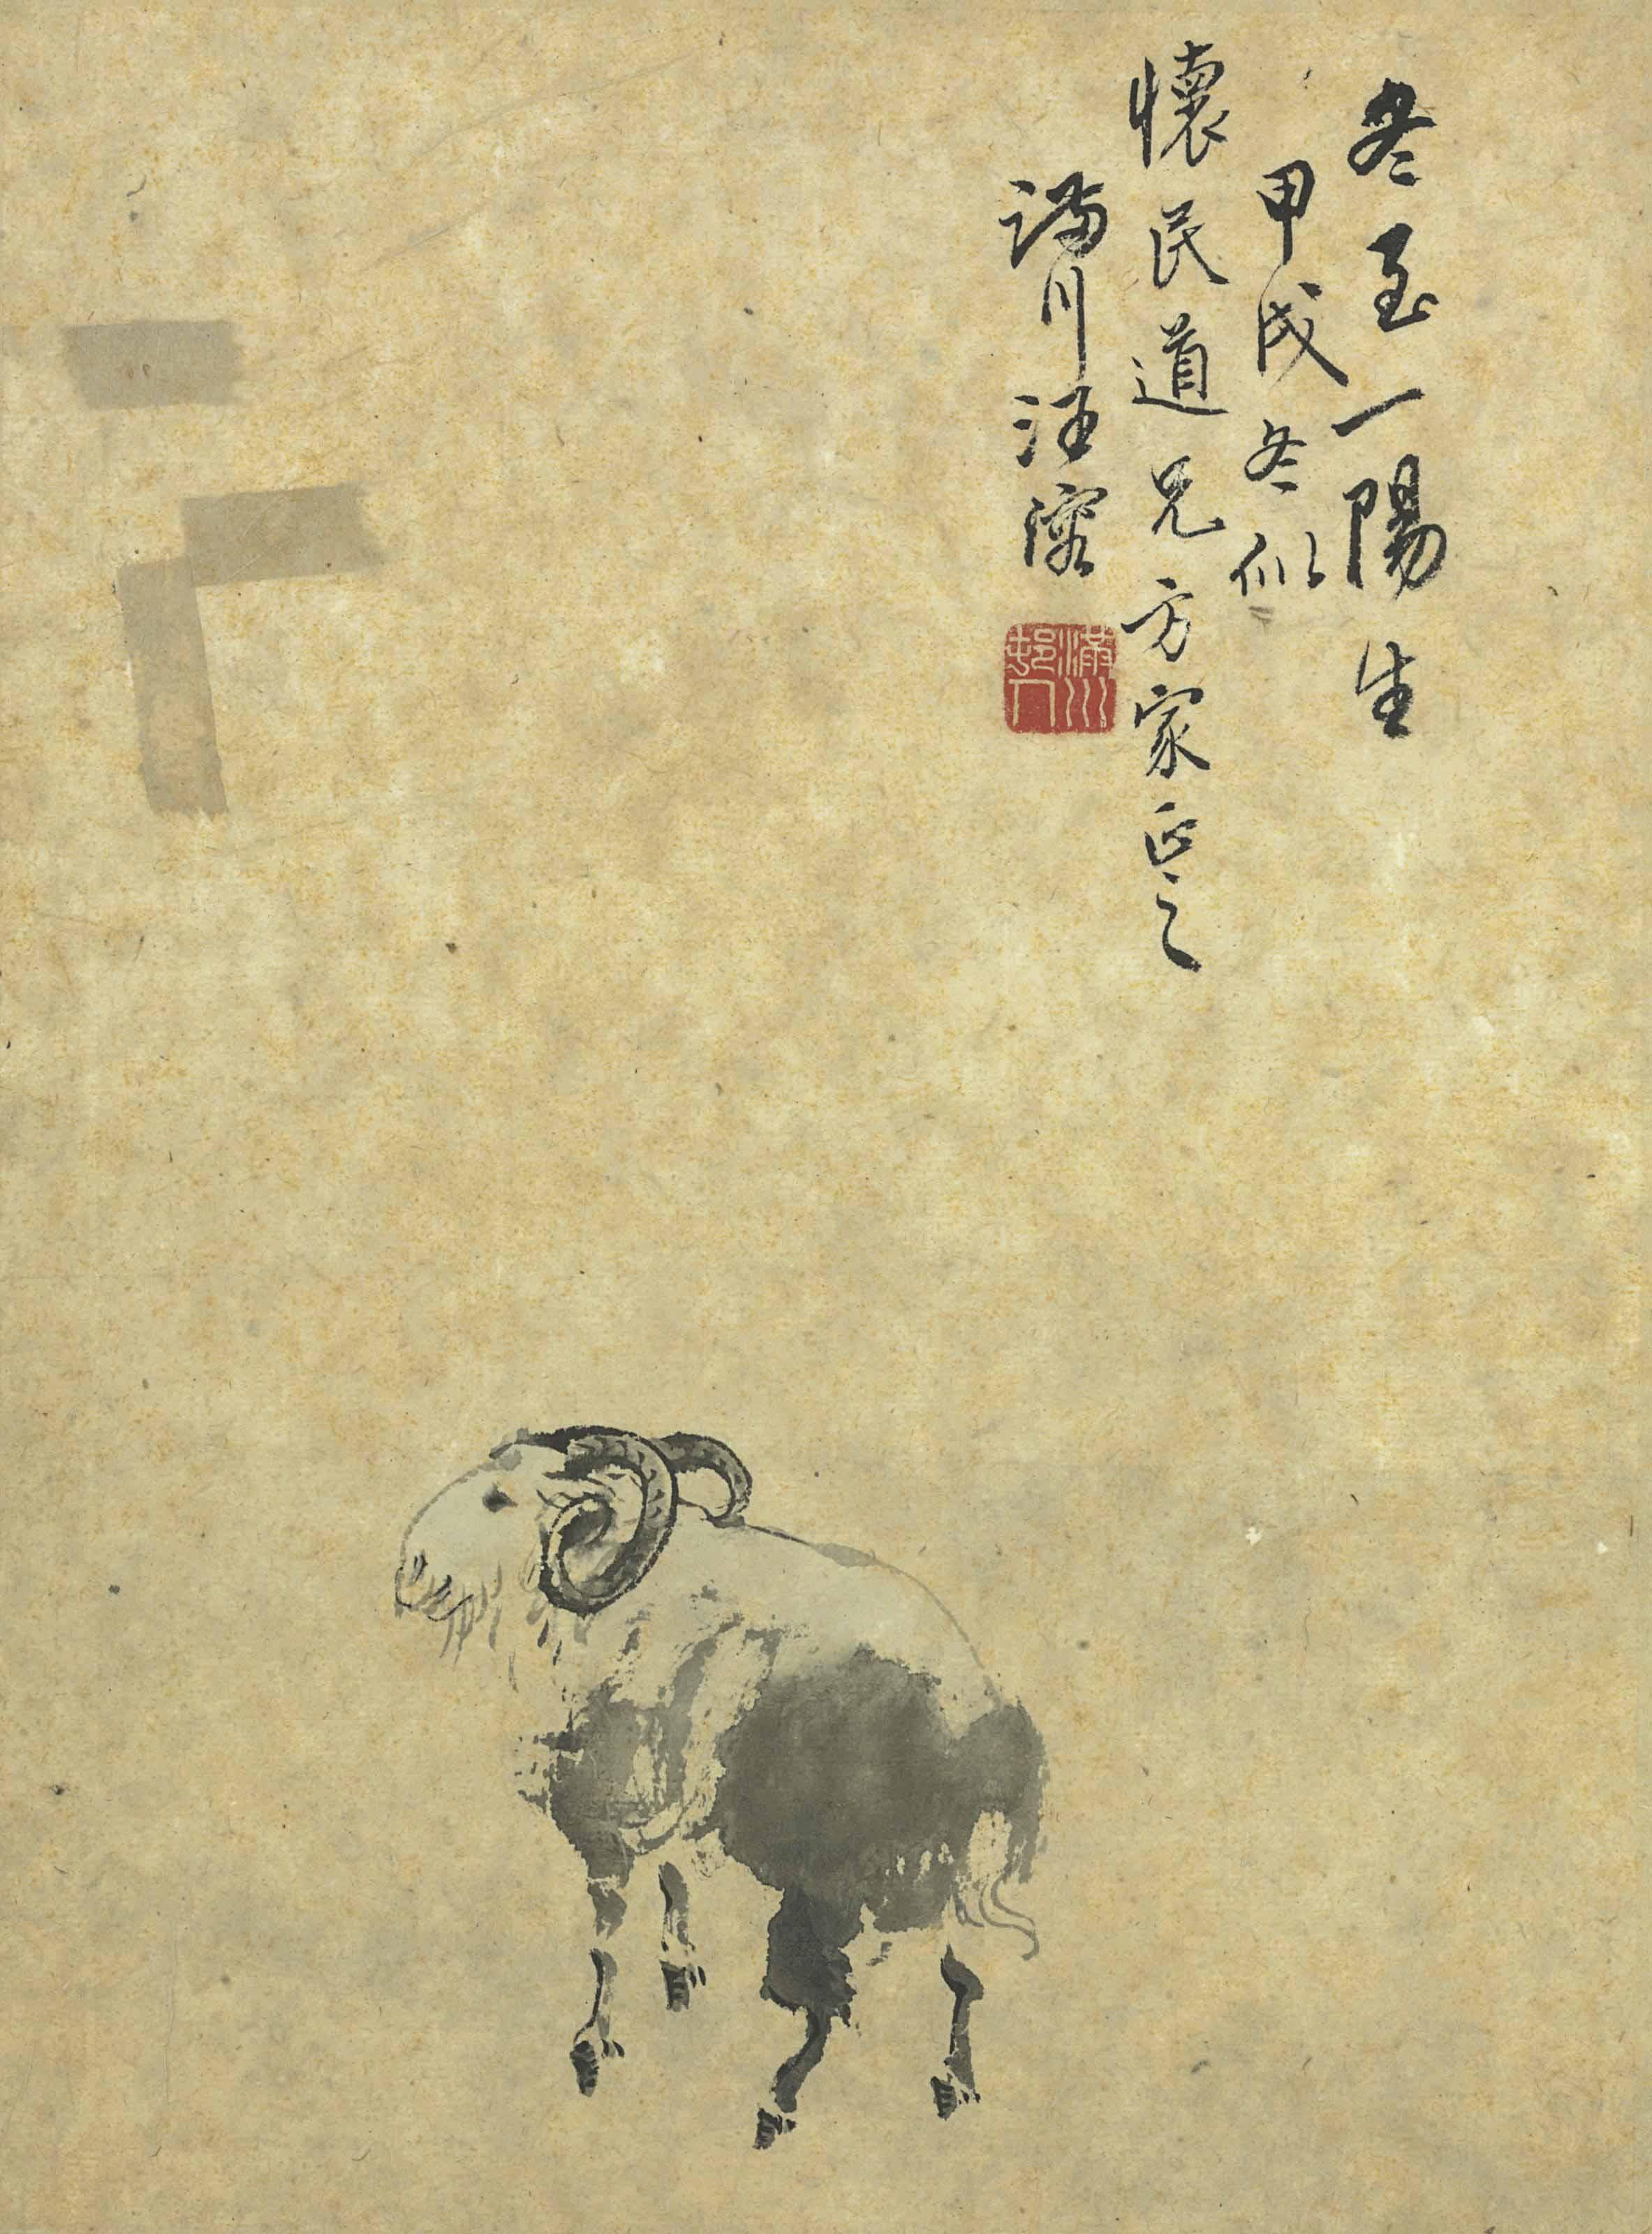 冬至一陽生
甲戌冬似
懷民道兄方家正之
滿川汪溶
滿川邨人